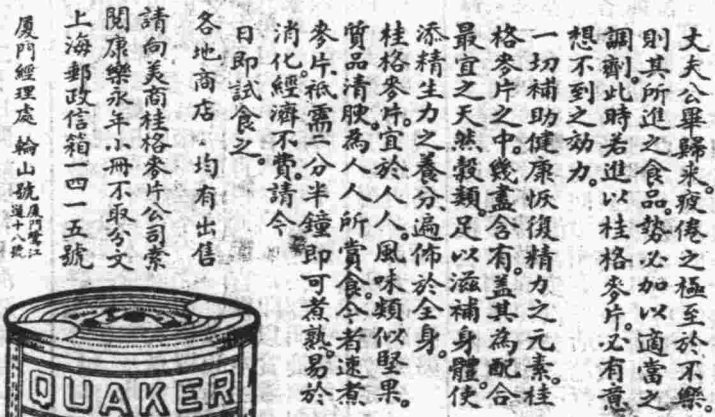 丈夫公畢歸來。疲倦之極至於不樂。
則其所進之食品。勢必加以適當之
調劑。此時若進以桂格麥片。必有意
想不到之効力。
一切補助健康恢復精力之元素。桂
格麥片之中。幾盡含有。蓋其為配合
最宜之天然穀類。足以滋補身體。使
添精生力之養分。遍佈於全身。
桂格麥片。宜於人人。風味類似堅果。
質品清腴。為人人所賞食。今者速煮
麥片。祇需二分半鐘。即可煮熟。易於
消化。經濟不費。請今
日即試食之。
各地商店。均有出售
請向美商桂格麥片公司索
閱康樂永年小冊不取分文
上海郵政信箱一四一五號
廈門經理處 輪山號 廈門鷺江
道十八號
QUAKER